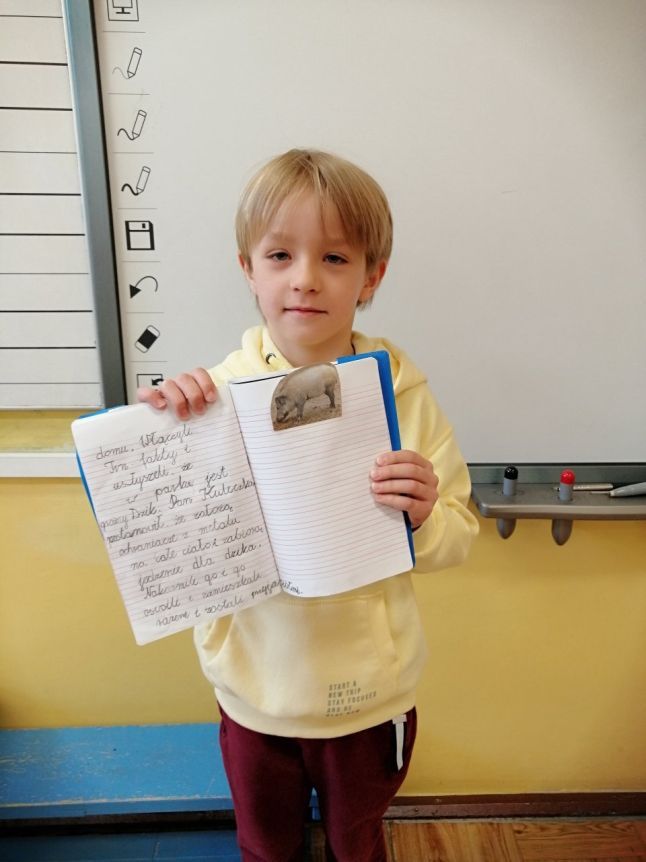 domu. Włączyli
Tvn fakty i
usłyszeli że
w parku jest
groźny Dzik. Pan Kuleczka
postanowił że założą
ochraniacze z metalu
na całe ciało i zabiorą
jedzenie dla dzika.
Nakarmili go i go
oswoili i zamieszkali
razem i zostali przyjaciółmi.
START A
NEW TRIP
STAY FOCUSED
AND BE